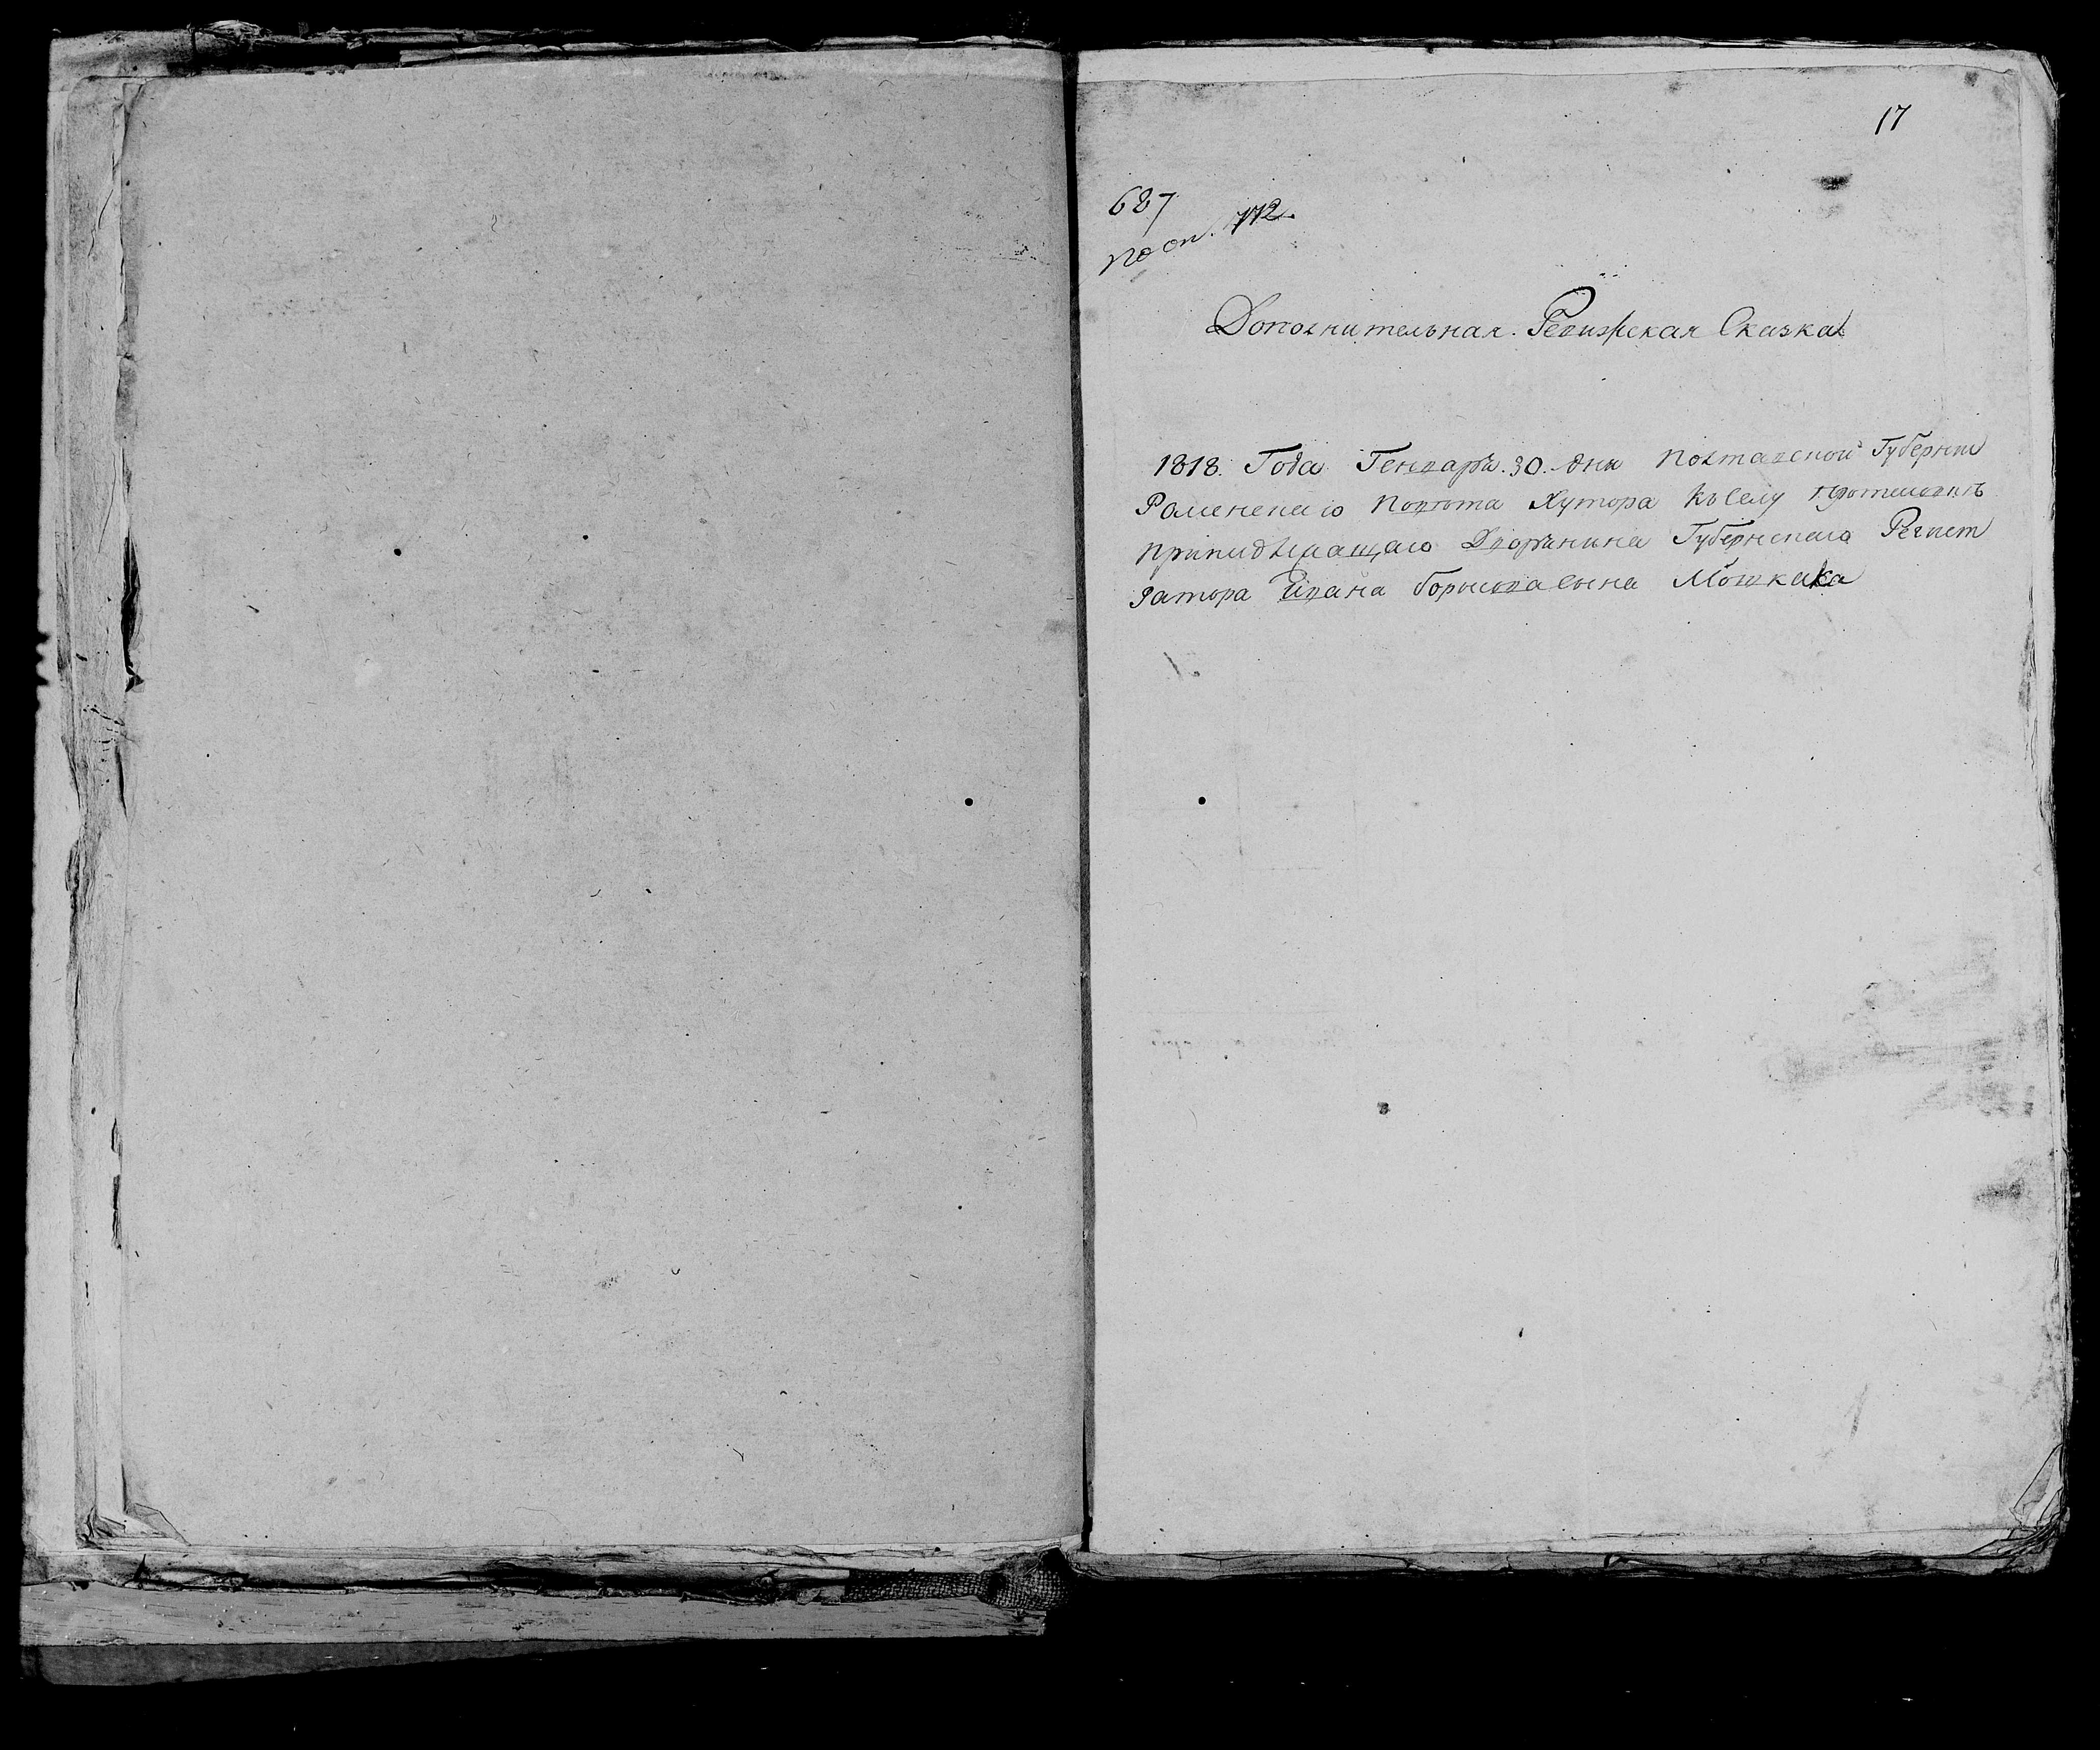 17
687
по оп. 772.
Дополнительная Ревизская Сказка
1818. Года Генваря. 30. дня Полтавской Губернии
Роменскаго Повѣта Хутора къ селу
принадлежащаго Дворянина Губернскаго Регист
ратора Ивана борисова сына Мошкака